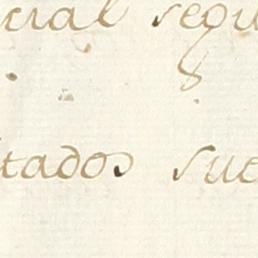 cial segu
tados sue